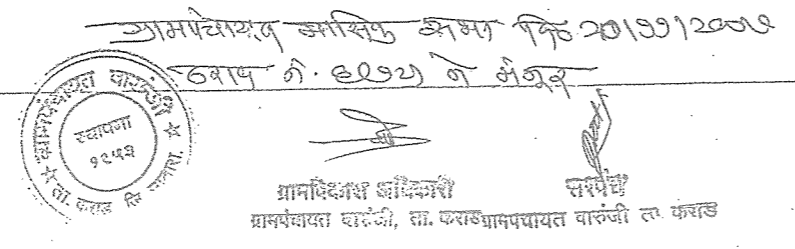 ग्रामपंचायत मासिक सभा दि. 20/11/2009
ठराव नं. ६(१२) ने मंजूर
ग्रामपंचायत वारुंजी
स्थापना
१९५३
ता. कराड जि. सातारा.
ग्रामविकास अधिकारी
सरपंच
ग्रामपंचायत वारुंजी, ता. कराड
ग्रामपंचायत वारुंजी ता. कराड